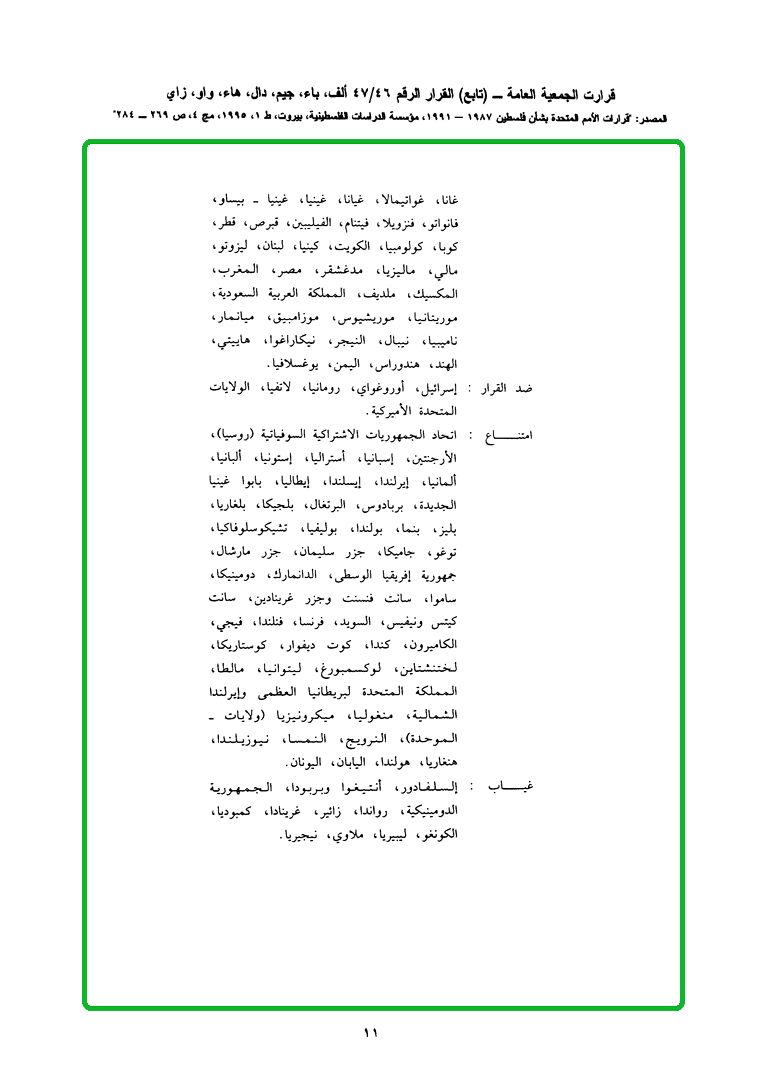 قرارت الجمعية العامة ــ (تابع) القرار الرقم ٤٧/٤٦ ألف، باء، جيم، دال، هاء، واو، زاي
المصدر: "قرارات الأمم المتحدة بشأن فلسطين ١٩٨٧ – ١٩٩١، مؤسسة الدراسات الفلسطينية، بيروت، ط ١، ١٩٩٥، مج ٤، ص ٢٦٩ ــ ٢٨٤"
غانا، غواتيمالا، غيانا، غينيا، غينيا ـ بيساو،
فانواتو، فنزويلا، فيتنام، الفيليبين، قبرص، قطر،
كوبا، كولومبيا، الكويت، كينيا، لبنان، ليزوتو،
مالي، ماليزيا، مدغشقر، مصر، المغرب،
المكسيك، ملديف، المملكة العربية السعودية،
موريتانيا، موريشيوس، موزامبيق، ميانمار،
ناميبيا، نيبال، النيجر، نيكاراغوا، هاييتي،
الهند، هندوراس، اليمن، يوغسلافيا.
ضد القرار : إسرائيل، أوروغواي، رومانيا، لاتفيا، الولايات
المتحدة الأميركية.
امتنـــــاع : اتحاد الجمهوريات الاشتراكية السوفياتية (روسيا)،
الأرجنتين، إسبانيا، أستراليا، إستونيا، ألبانيا،
ألمانيا، إيرلندا، إيسلندا، إيطاليا، بابوا غينيا
الجديدة، بربادوس، البرتغال، بلجيكا، بلغاريا،
بليز، بنما، بولندا، بوليفيا، تشيكوسلوفاكيا،
توغو، جاميكا، جزر سليمان، جزر مارشال،
جمهورية إفريقيا الوسطى، الدانمارك، دومينيكا،
ساموا، سانت فنسنت وجزر غرينادين، سانت
كيتس ونيفيس، السويد، فرنسا، فنلندا، فيجي،
الكاميرون، كندا، كوت ديفوار، كوستاريكا،
لختنشتاين، لوكسمبورغ، ليتوانيا، مالطا،
المملكة المتحدة لبريطانيا العظمى وإيرلندا
الشمالية، منغوليا، ميكرونيزيا (ولايات ـ
الموحدة)، النرويج، النمسا، نيوزيلندا،
هنغاريا، هولندا، اليابان، اليونان.
غيـــــاب : إلسلفادور، أنتيغوا وبربودا، الجمهورية
الدومينيكية، رواندا، زائير، غرينادا، كمبوديا،
الكونغو، ليبيريا، ملاوي، نيجيريا.
١١